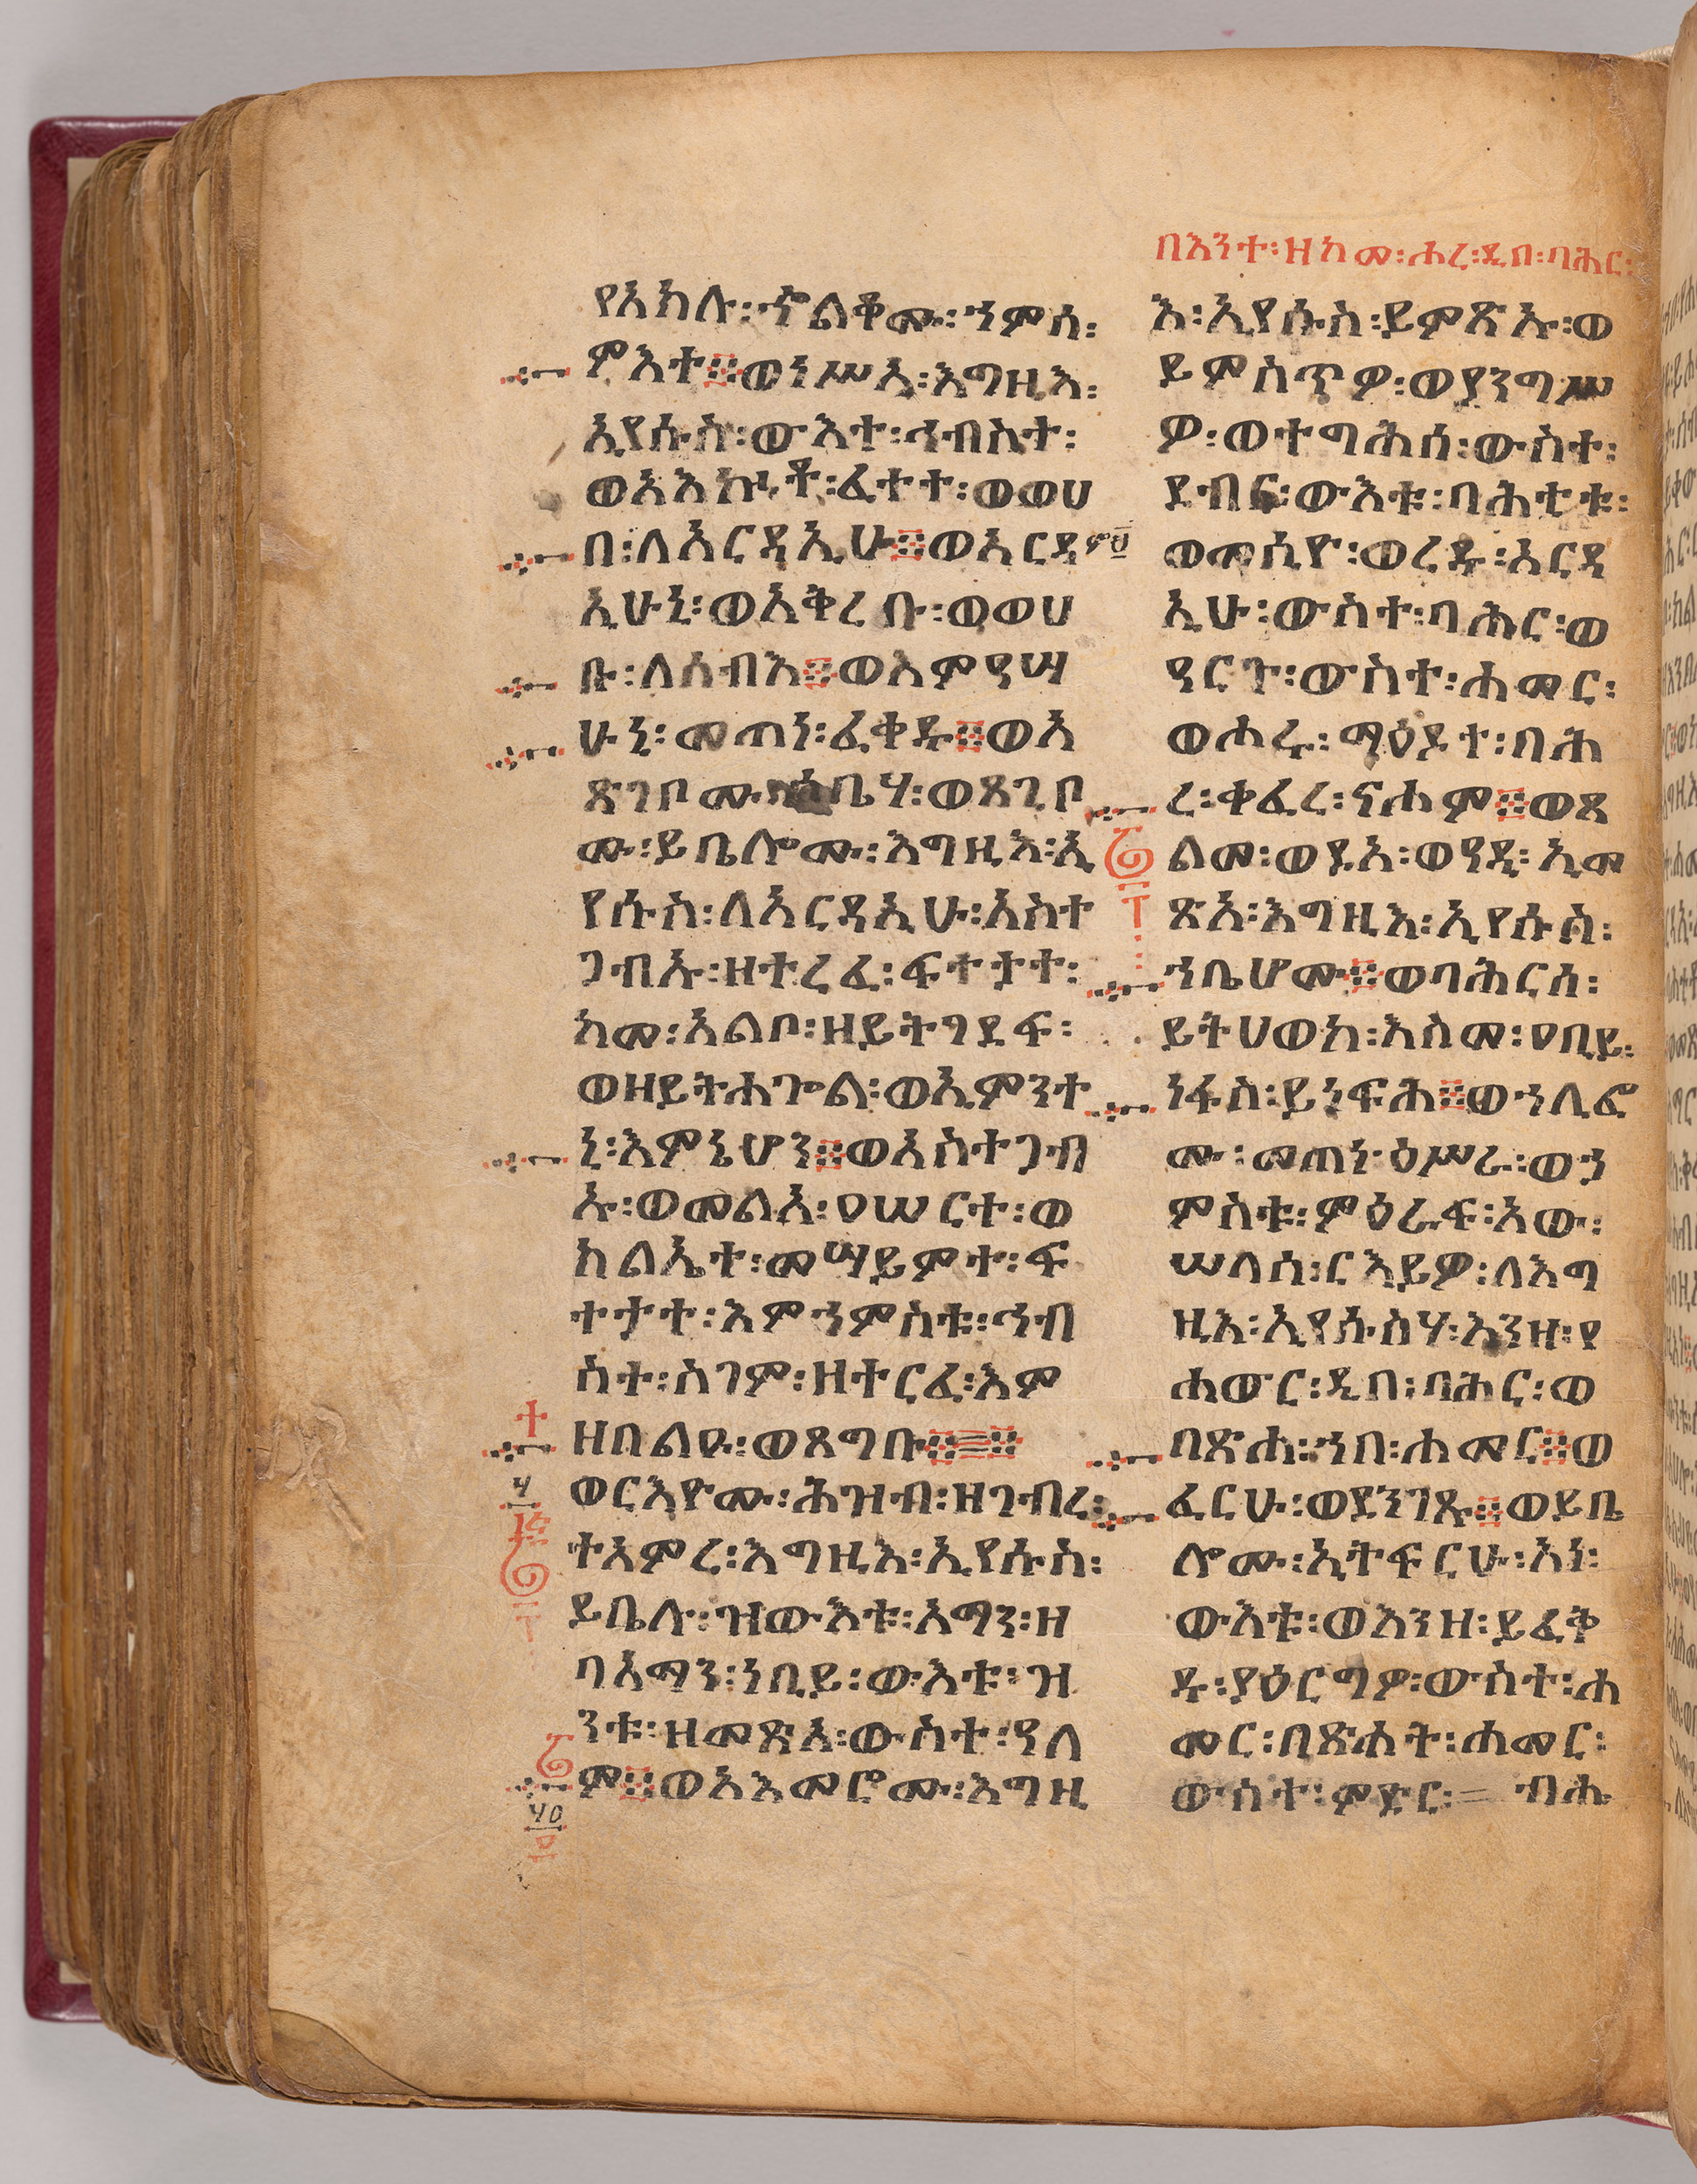 በእንተ፡ዘከመ፡ሖረ፡ዲበ፡ባሕር፡
የአክሉ፡ኍልቆሙ፡ኀምሳ፡
ምእተ፨ወነሥአ፡እግዚእ፡
ኢየሱስ፡ውእተ፡ኅብስት፡
ወአእኰቶ፡ፈተተ፡ወወሀ
በ፡ለአርዳኢሁ፨ወአርዳ
ኢሁኒ፡ወአቅረቡ፡ወወሀ
ቡ፡ለሰብእ፨ወእምዓሣ
ሁኒ፡መጠነ፡ፈቀዱ፨ወአ
ጽገቦሙ፡ወጸጊቦ
ሙ፡ይቤሎሙ፡እግዚእ፡ኢ
የሱስ፡ለአርዳኢሁ፡አስተ
ጋብኡ፡ዘተረፈ፡ፍተታተ፡
ከመ፡አልቦ፡ዘይትገደፍ፡
ወዘይትሐጐል፡ወኢምንተ
ኒ፡እምኔሆን፨ወአስተጋብ
ኡ፡ወመልአ፡ዐሠርተ፡ወ
ክልኤተ፡መሣይምተ፡ፍ
ተታተ፡እምኀምስቱ፡ኅብ
ስተ፡ስገም፡ዘተርፈ፡እም
ዘበልዑ፡ወጸግቡ፨
ወርእዮሙ፡ሕዝብ፡ዘገብረ፡
ተአምረ፡እግዚእ፡ኢየሱስ፡
ይቤሉ፡ዝውእቱ፡አማን፡ዘ
ባአማን፡ነቢይ፡ውእቱ፡ዝ
ንቱ፡ዘመጽአ፡ውስተ፡ዓለ
ም፨ወአእመሮሙ፡እግዚ
እ፡ኢየሱስ፡ይምጽኡ፡ወ
ይምስጥዎ፡ወያንግሥ
ዎ፡ወተግሕሰ፡ውስተ፡
ደብር፡ውእቱ፡ባሕቲቱ፡
ወመሲዮ፡ወረዱ፡አርዳ
ኢሁ፡ውስተ፡ባሕር፡ወ
ዓርጉ፡ውስተ፡ሐመር፡
ወሖሩ፡ማዕዶተ፡ባሕ
ረ፡ቀፈረ፡ናሖም፨ወጸ
ልመ፡ወይእ፡ወዓዲ፡ኢመ
ጽአ፡እግዚእ፡ኢየሱስ፡
ኀቤሆሙ፨ወባሕርሰ፡
ይትሀወክ፡እስመ፡ዐቢይ፡
ነፋስ፡ይነፍሕ፨ወኀሊፎ
ሙ፡መጠነ፡ዕሥራ፡ወኃ
ምስቱ፡ምዕራፍ፡አው፡
ሠላሳ፡ርእይዎ፡ለእግ
ዚእ፡ኢየሱስሃ፡እንዘ፡የ
ሐውር፡ዲበ፡ባሕር፡ወ
በጽሐ፡ኀበ፡ሐመር፨ወ
ፈርሁ፡ወደንገጹ፨ወይቤ
ሎሙ፡ኢትፍርሁ፡አነ፡
ውእቱ፡ወእንዘ፡ይፈቅ
ዱ፡ያዕርግዎ፡ውስተ፡ሐ
መር፡በጽሐት፡ሐመር፡
ውስተ፡ምድር፡= ብሕ